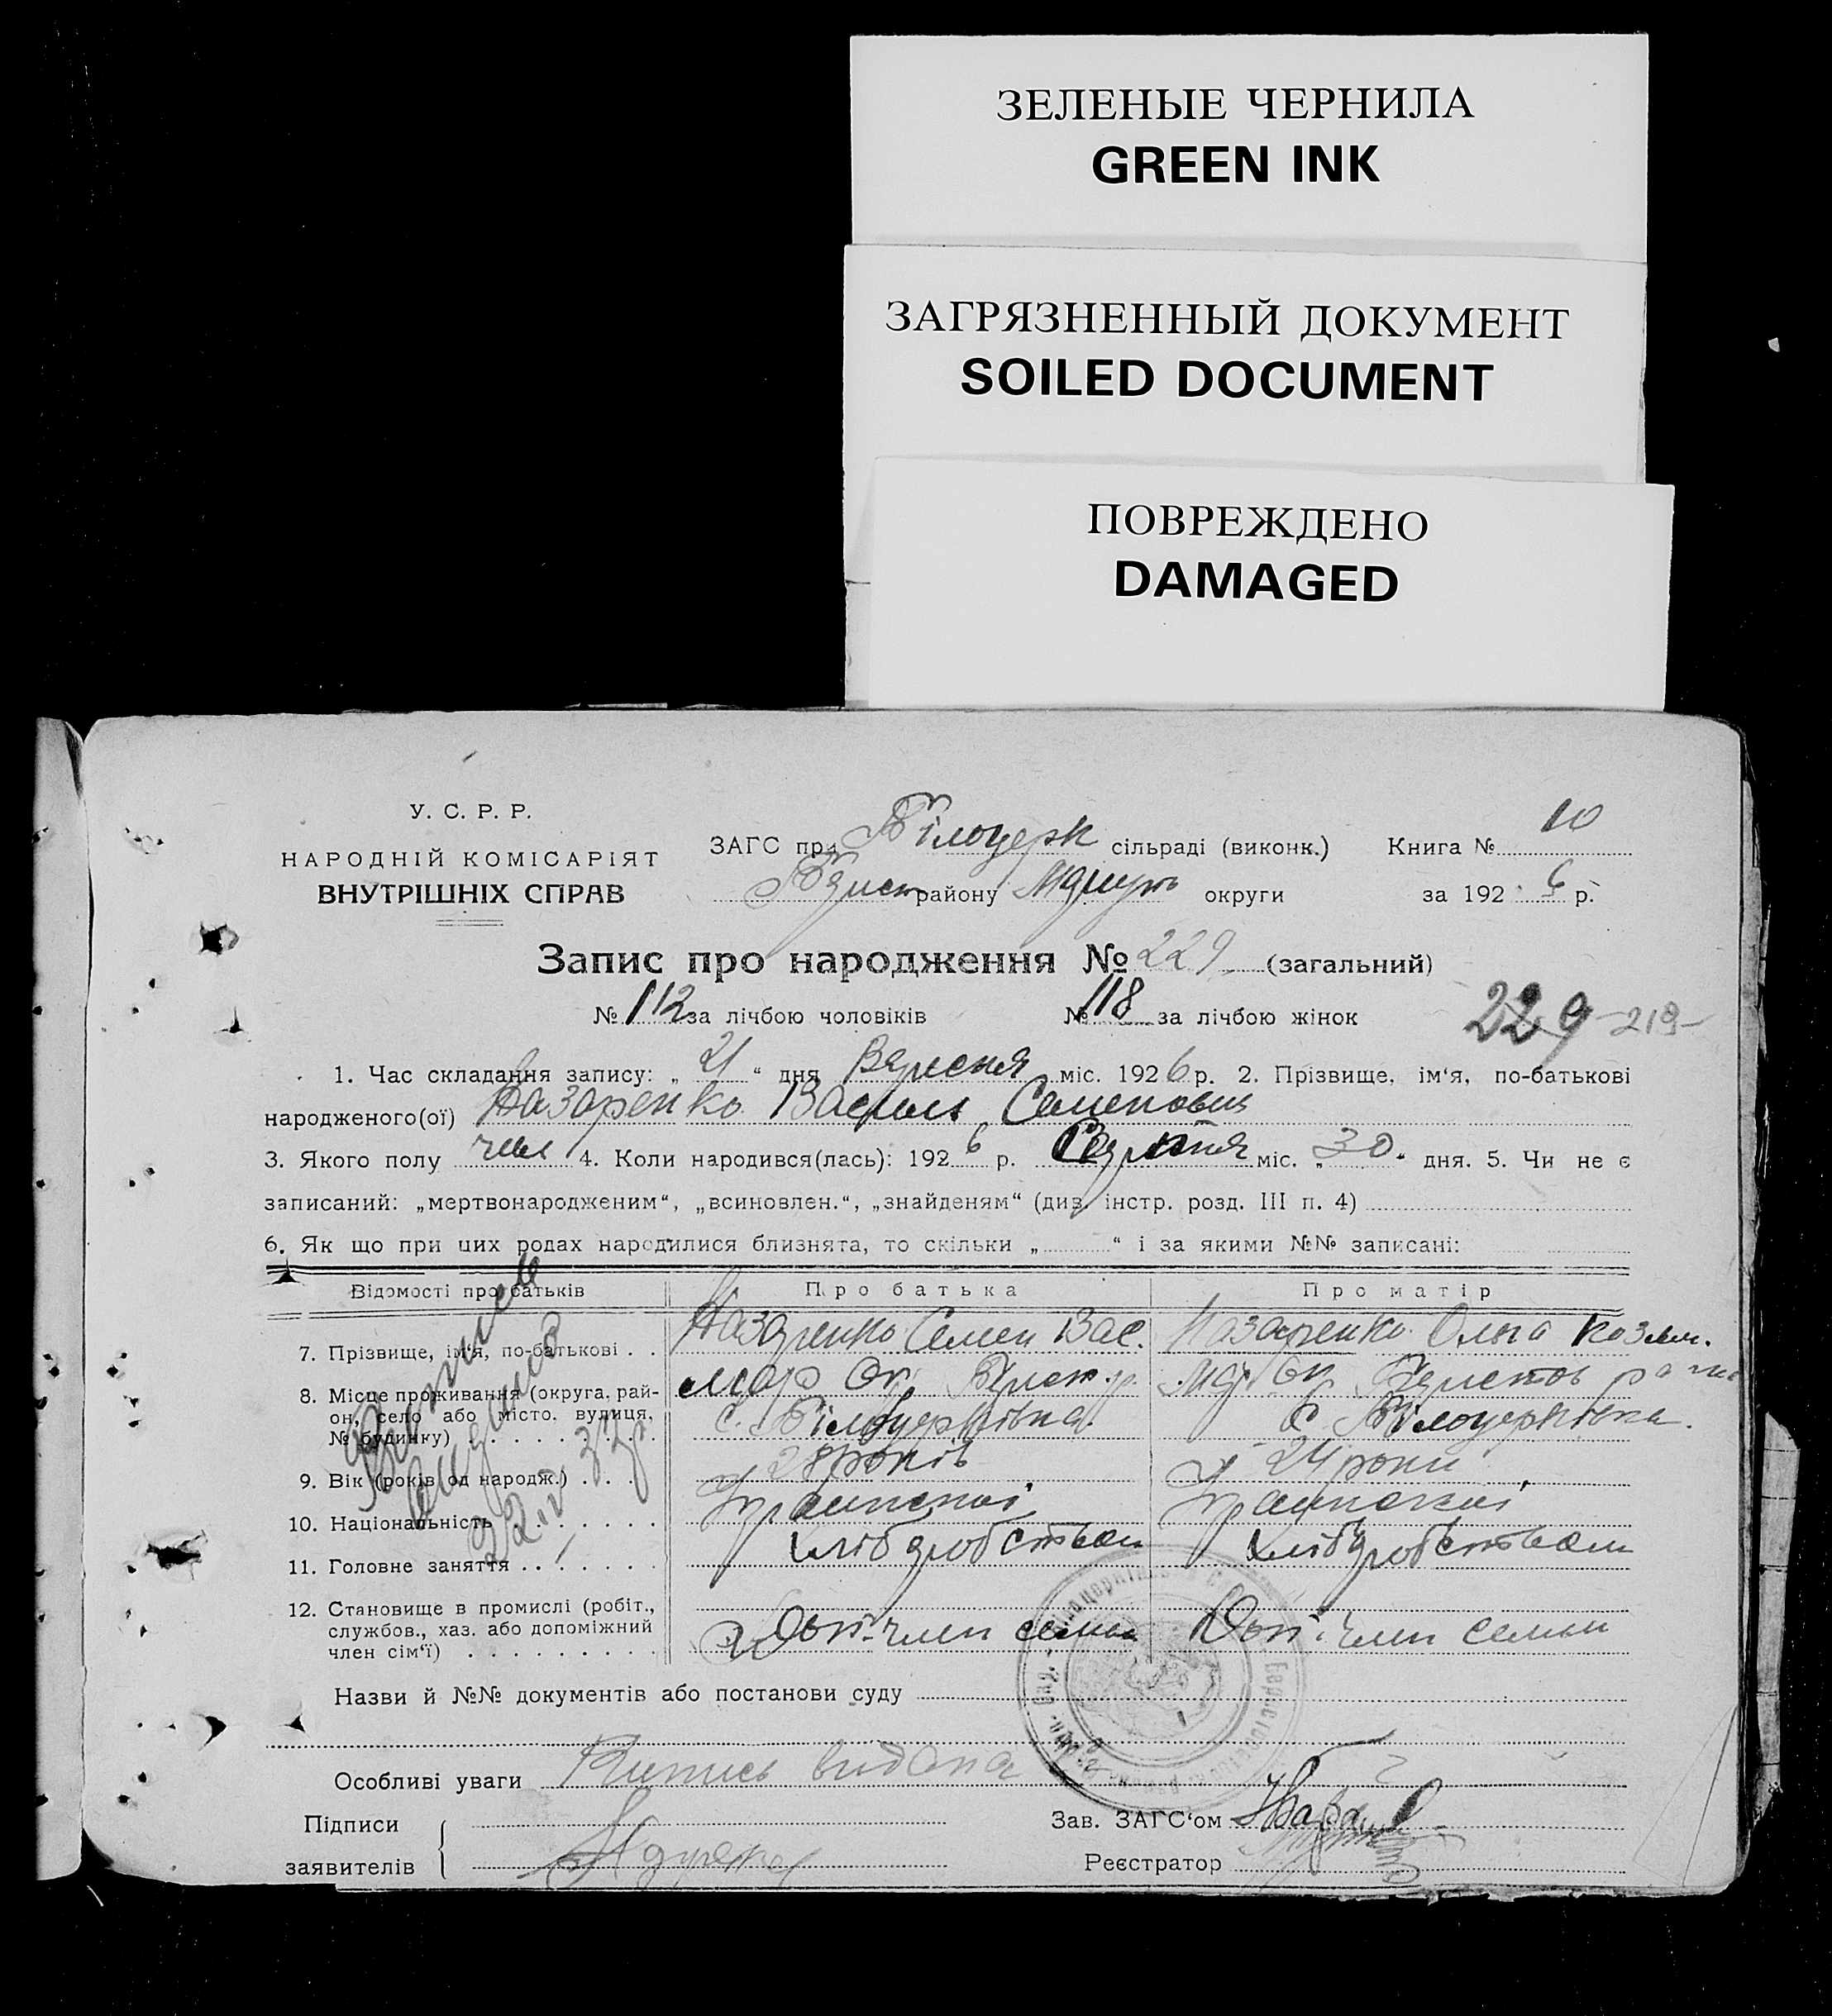 ЗЕЛЕНЫЕ ЧЕРНИЛА
GREEN INK
ЗАГРЯЗНЕННЫЙ ДОКУМЕНТ
SOILED DOCUMENT
ПОВРЕЖДЕНО
DAMAGED
У. С. Р. Р.
НАРОДНІЙ КОМІСАРІЯТ
ВНУТРІШНІХ СПРАВ
ЗАГС при Білоцерк сільраді (виконк.) Книга № 10
району округи за 192 6 р.
Запис про народження № 229 (загальний)
№ 112 за лічбою чоловіків № 118 за лічбою жінок
229 -219-
1. Час складання запису: „ 21 “ дня Вересня міс. 192 6 р. 2. Прізвище, ім‘я, по-батькові
народженого(ої) Назаренко Василь Семенович
3. Якого полу чол 4. Коли народився(лась): 192 6 р. Серпня міс. „ 30 “ дня. 5. Чи не є
записаний: „мертвонародженим“, „всиновлен.“, „знайденям“ (див. інстр. розд. III п. 4)
6. Як що при цих родах народилися близнята, то скільки „ “ і за якими №№ записані:
Відомості про батьків Про батька Про матір
7. Прізвище, ім‘я, по-батькові . . Назаренко Семен Вас. Назаренко Ольга Козьм.
8. Місце проживання (округа, рай-
он, село або місто, вулиця,
№ будинку) . . . . . . . . .
с. Білоцерківка. с Білоцерківка.
9. Вік (років од народж.) . . . . 28 років 24 роки
10. Національність . . . . . . . Украинскоі Украинскоі
11. Головне заняття . . . . . . . хліборобством хліборобством
12. Становище в промислі (робіт.,
службов., хаз. або допоміжний
член сім‘ї) . . . . . . . . .
Доп. член семьи Доп. член семьи
Назви й №№ документів або постанови суду
Особливі уваги Випись видана
Підписи
заявителів
Зав. ЗАГС‘ом
Реєстратор